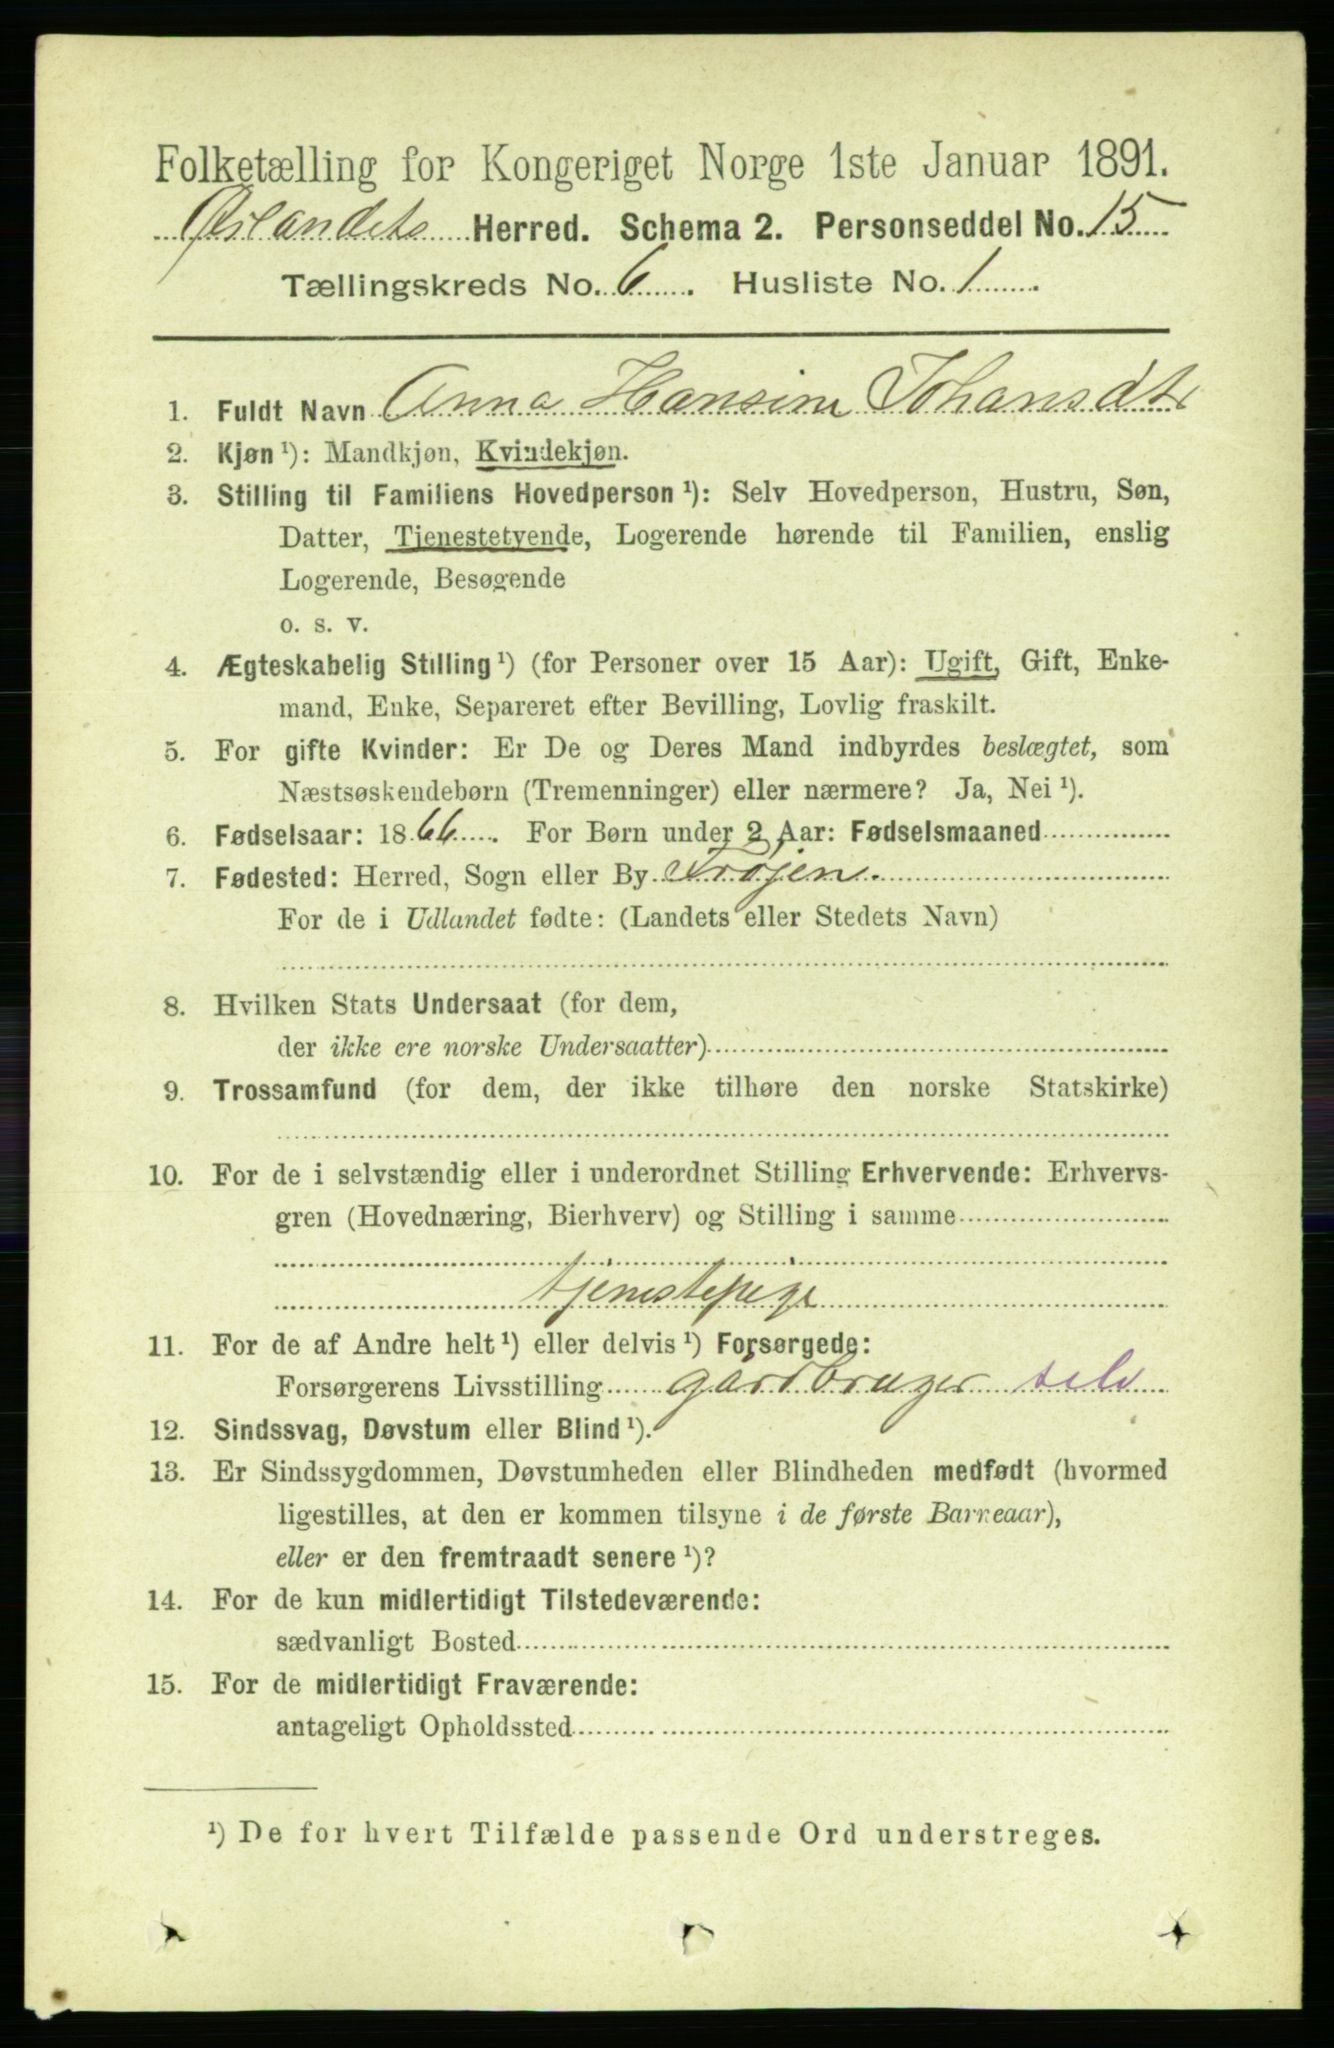 Folketælling for Kongeriget Norge 1ste Januar 1891.
Ørlandets Herred. Schema 2. Personseddel No. 15
Tællingskreds No. 6. Husliste No. 1.
1. Fuldt Navn Anna Hansine Johansdt.
2. Kjøn ¹): Mandkjøn, Kvindekjøn.
3. Stilling til Familiens Hovedperson ¹): Selv Hovedperson, Hustru, Søn,
Datter, Tjenestetyende, Logerende hørende til Familien, enslig
Logerende, Besøgende
o. s. v.
4. Ægteskabelig Stilling ¹) (for Personer over 15 Aar): Ugift, Gift, Enke-
mand, Enke, Separeret efter Bevilling, Lovlig fraskilt.
5. For gifte Kvinder: Er De og Deres Mand indbyrdes beslægtet, som
Næstsøskendebørn (Tremenninger) eller nærmere? Ja, Nei ¹).
6. Fødselsaar: 1866. For Børn under 2 Aar: Fødselsmaaned
7. Fødested: Herred, Sogn eller By Frøjen.
For de i Udlandet fødte: (Landets eller Stedets Navn)
8. Hvilken Stats Undersaat (for dem,
der ikke ere norske Undersaatter)
9. Trossamfund (for dem, der ikke tilhøre den norske Statskirke)
10. For de i selvstændig eller i underordnet Stilling Erhvervende: Erhvervs-
gren (Hovednæring, Bierhverv) og Stilling i samme
tjenstepige
11. For de af Andre helt ¹) eller delvis ¹) Forsørgede:
Forsørgerens Livsstilling gardbruger selv
12. Sindssvag, Døvstum eller Blind ¹).
13. Er Sindssygdommen, Døvstumheden eller Blindheden medfødt (hvormed
ligestilles, at den er kommen tilsyne i de første Barneaar),
eller er den fremtraadt senere ¹)?
14. For de kun midlertidigt Tilstedeværende:
sædvanligt Bosted
15. For de midlertidigt Fraværende:
antageligt Opholdssted
¹) De for hvert Tilfælde passende Ord understreges.